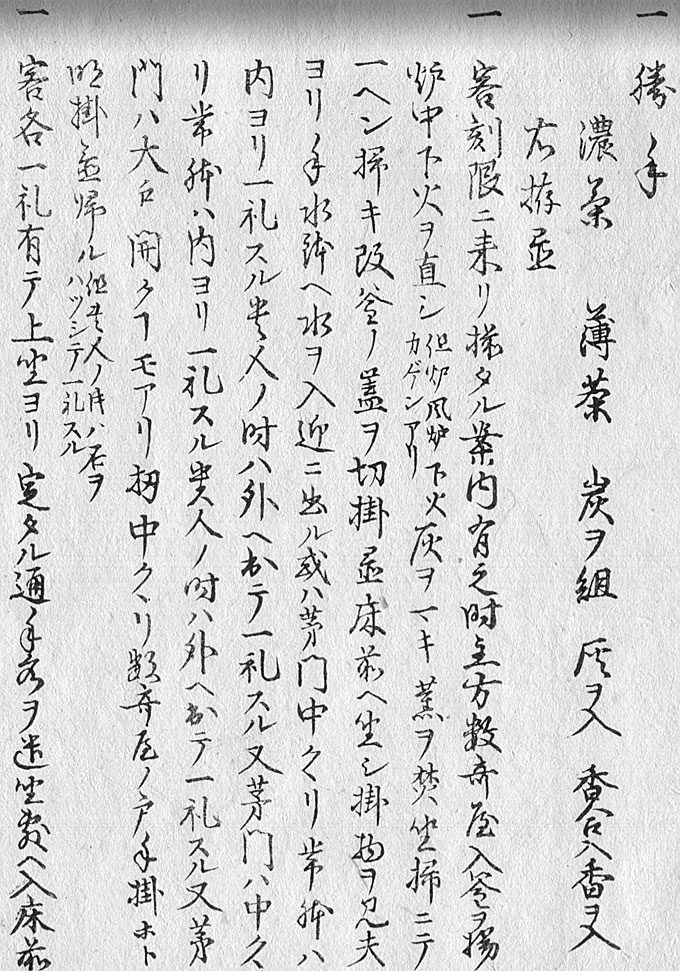 一 勝手
濃茶 薄茶 炭ヲ組 灰ヲ入 香合ヘ香ヲ入
右拵置
一 客刻限ニ来リ揃タル案内有之時主方数奇屋入釜ヲ揚
炉中下火ヲ直シ 但炉風炉下火カゲンアリ 灰ヲマキ薫ヲ焚坐掃ニテ
一ヘン掃キ改釜ノ蓋ヲ切掛置床前ヘ坐シ掛物ヲ見夫
ヨリ手水鉢ヘ水ヲ入迎ニ出ル或ハ茅門中クヾリ常躰ハ
内ヨリ一礼スル貴人ノ時ハ外ヘ出テ一礼スル又茅門ハ中クヾ
リ常躰ハ内ヨリ一礼スル貴人ノ時ハ外ヘ出テ一礼スル又茅
門ハ大戸開クコモアリ扨中クヾリ数奇屋ノ戸手掛ホト
明掛置帰ル 但貴人ノ時ハ石ヲハツシテ一礼スル
一 客各一礼有テ上坐ヨリ定タル通手水ヲ遣坐敷ヘ入床前